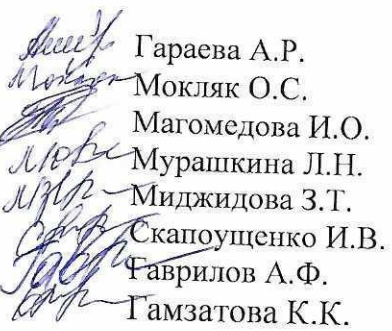 Гараева А.Р.
Мокляк О.С.
Магомедова И.О.
Мурашкина Л.Н.
Миджидова З.Т.
Скапоущенко И.В.
Гаврилов А.Ф.
Гамзатова К.К.